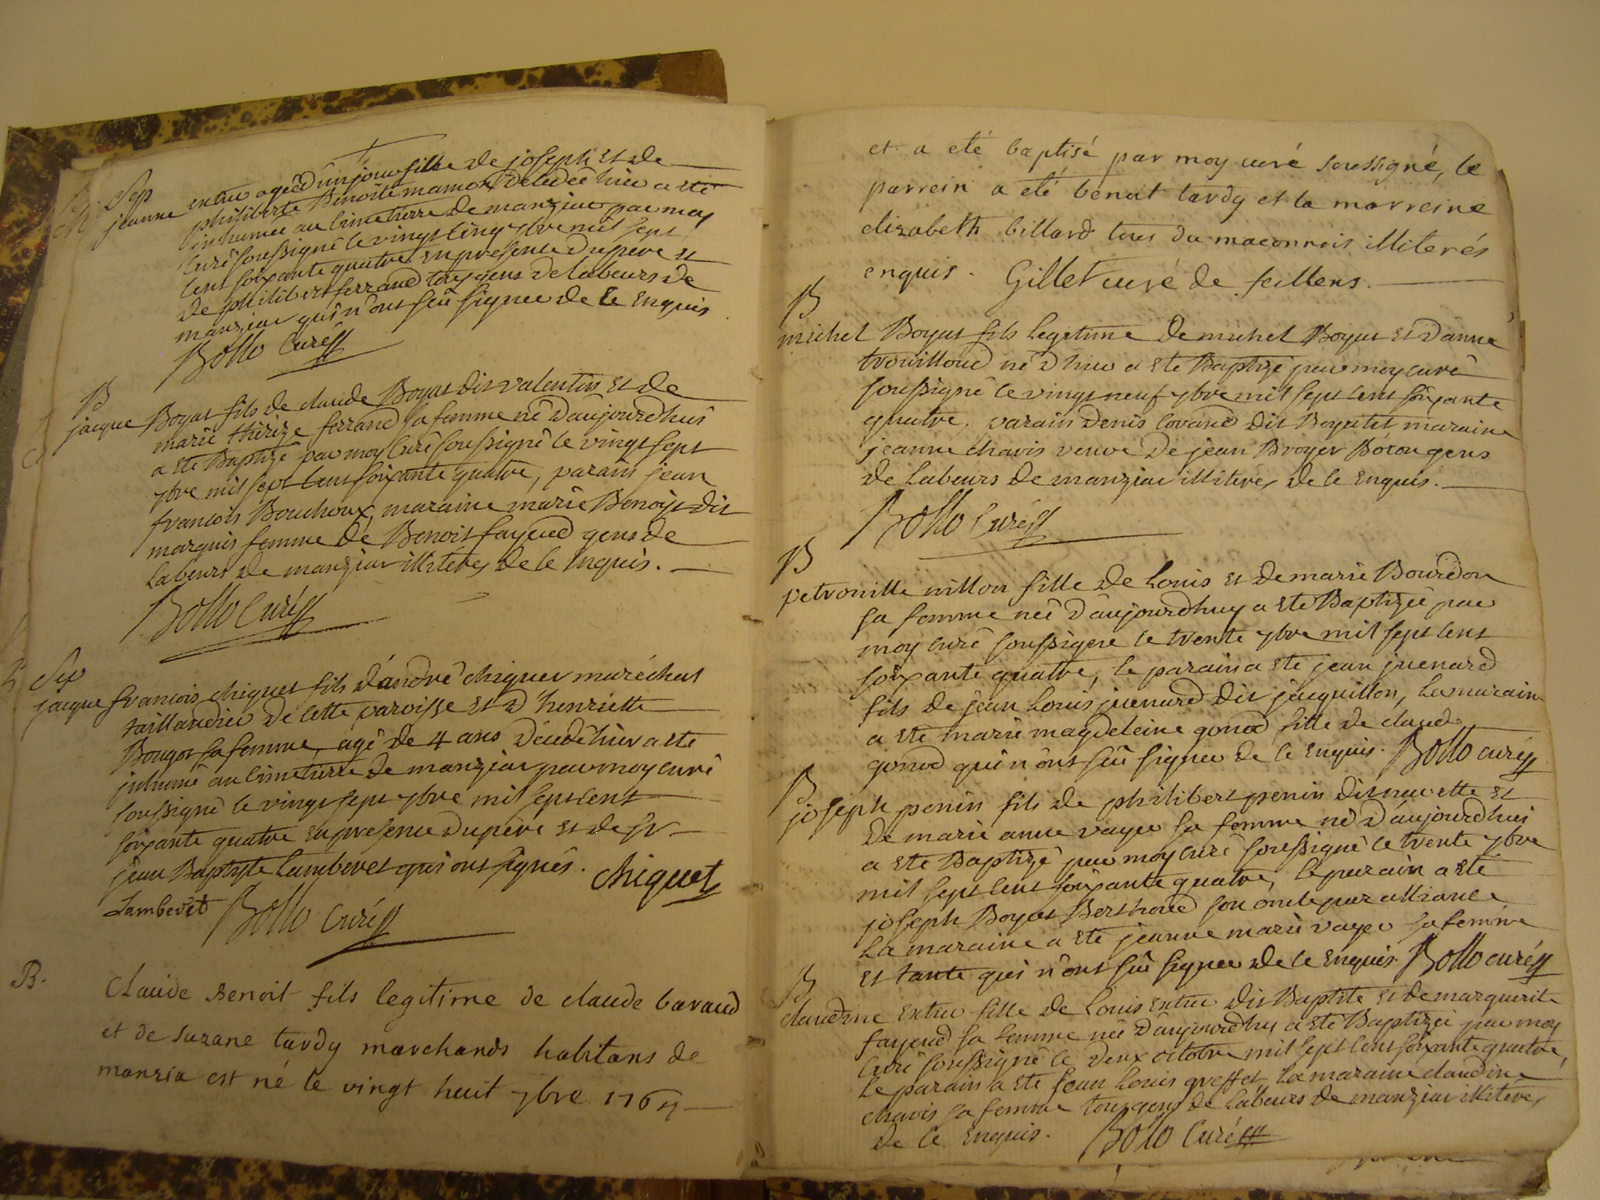 Sep
jeanne extru agée d'un jour fille de joseph et de
philiberte Benoite mamon decedée hier a eté
inhumée au Cimetierre de manziat par moy
Curé soussigné le vingt cinq 7bre mil sept
cent soixante quatre en presence du pere et
de philibert ferrand tous gens de labeurs de
manziat qui n'ont sçû signer de ce Enquis
Bollo Curé
B
jacque Boyat fils de claude Boyat dit valentin et de
marie thérèze ferrand sa femme né d'aujourdhui
a eté Baptizé par moy Curé soussigné le vingt sept
7bre mil sept cent soixante quatre, parain jean
francois Bouchoux, maraine marie Benoist dit
marquis femme de Benoit fayend gens de
labeurs de manziat illiterés de ce Enquis.
Bollo Curé
Sep
jacque francois chiquet fils d'andré chiquet maréchal
taillandier de cette paroisse et d'henriette
Bougot sa femme, agé de 4 ans decedé hier a eté
inhumé au Cimetierre de manziat par moy curé
soussigné le vingt sept 7bre mil sept cent
soixante quatre en presence du père et de sr
jean Baptiste Lamberet qui ont signés. Chiquet
Lamberet Bollo Curé
B.
Claude Benoit fils legitime de claude bavard
et de suzane tardy marchands habitans de
manzia est né le vingt huit 7bre 1764
et a eté baptisé par moy curé soussigné, le
parrein a eté benoit tardy et la marreine
elizabeth billard tous du maconnois illiterés
enquis. Gillet curé de feillens.
B
michel Boyat fils legitime de michel Boyat et d'anne
trouilloud né d'hier a eté Baptizé par moy curé
soussigné le vingt neuf 7bre mil sept cent soixante
quatre. parain denis Covand dit Boyatet maraine
jeanne chavis veuve de jean Broyer Boron gens
de labeurs de manziat illiterés de ce Enquis.
Bollo Curé
B
petronille millon fille de Louis et de marie Bourdon
sa femme née d'aujourdhuy a eté Baptizée par
moy curé soussigné le trente 7bre mil sept cent
soixante quatre, le parain a eté jean juenard
fils de jean Louis juenard dit jacquillon, la maraine
a eté marie magdeleine gonod fille de claude
gonod qui n'ont sçû signer de ce Enquis. Bollo curé
B
joseph penin fils de philibert penin dit nuette et
de marie anne vayer sa femme né d'aujourdhui
a eté Baptizé par moy curé soussigné le trente 7bre
mil sept cent soixante quatre, le parain a eté
joseph Boyat Berthoud son oncle par alliance
La maraine a eté jeanne marie vayer sa femme
et tante qui n'ont sçû signer de ce Enquis. Bollo curé
B
claudine extru fille de Louis extru dit Baptite et de marguerite
fayend sa femme née d'aujourdhuy a eté Baptizée par moy
Curé soussigné le deux octobre mil sept cent soixante quatre,
Le parain a eté jean Louis greffet La maraine claudine
chavis sa femme tous gens de labeurs de manziat illiterés
de ce Enquis. Bollo Curé